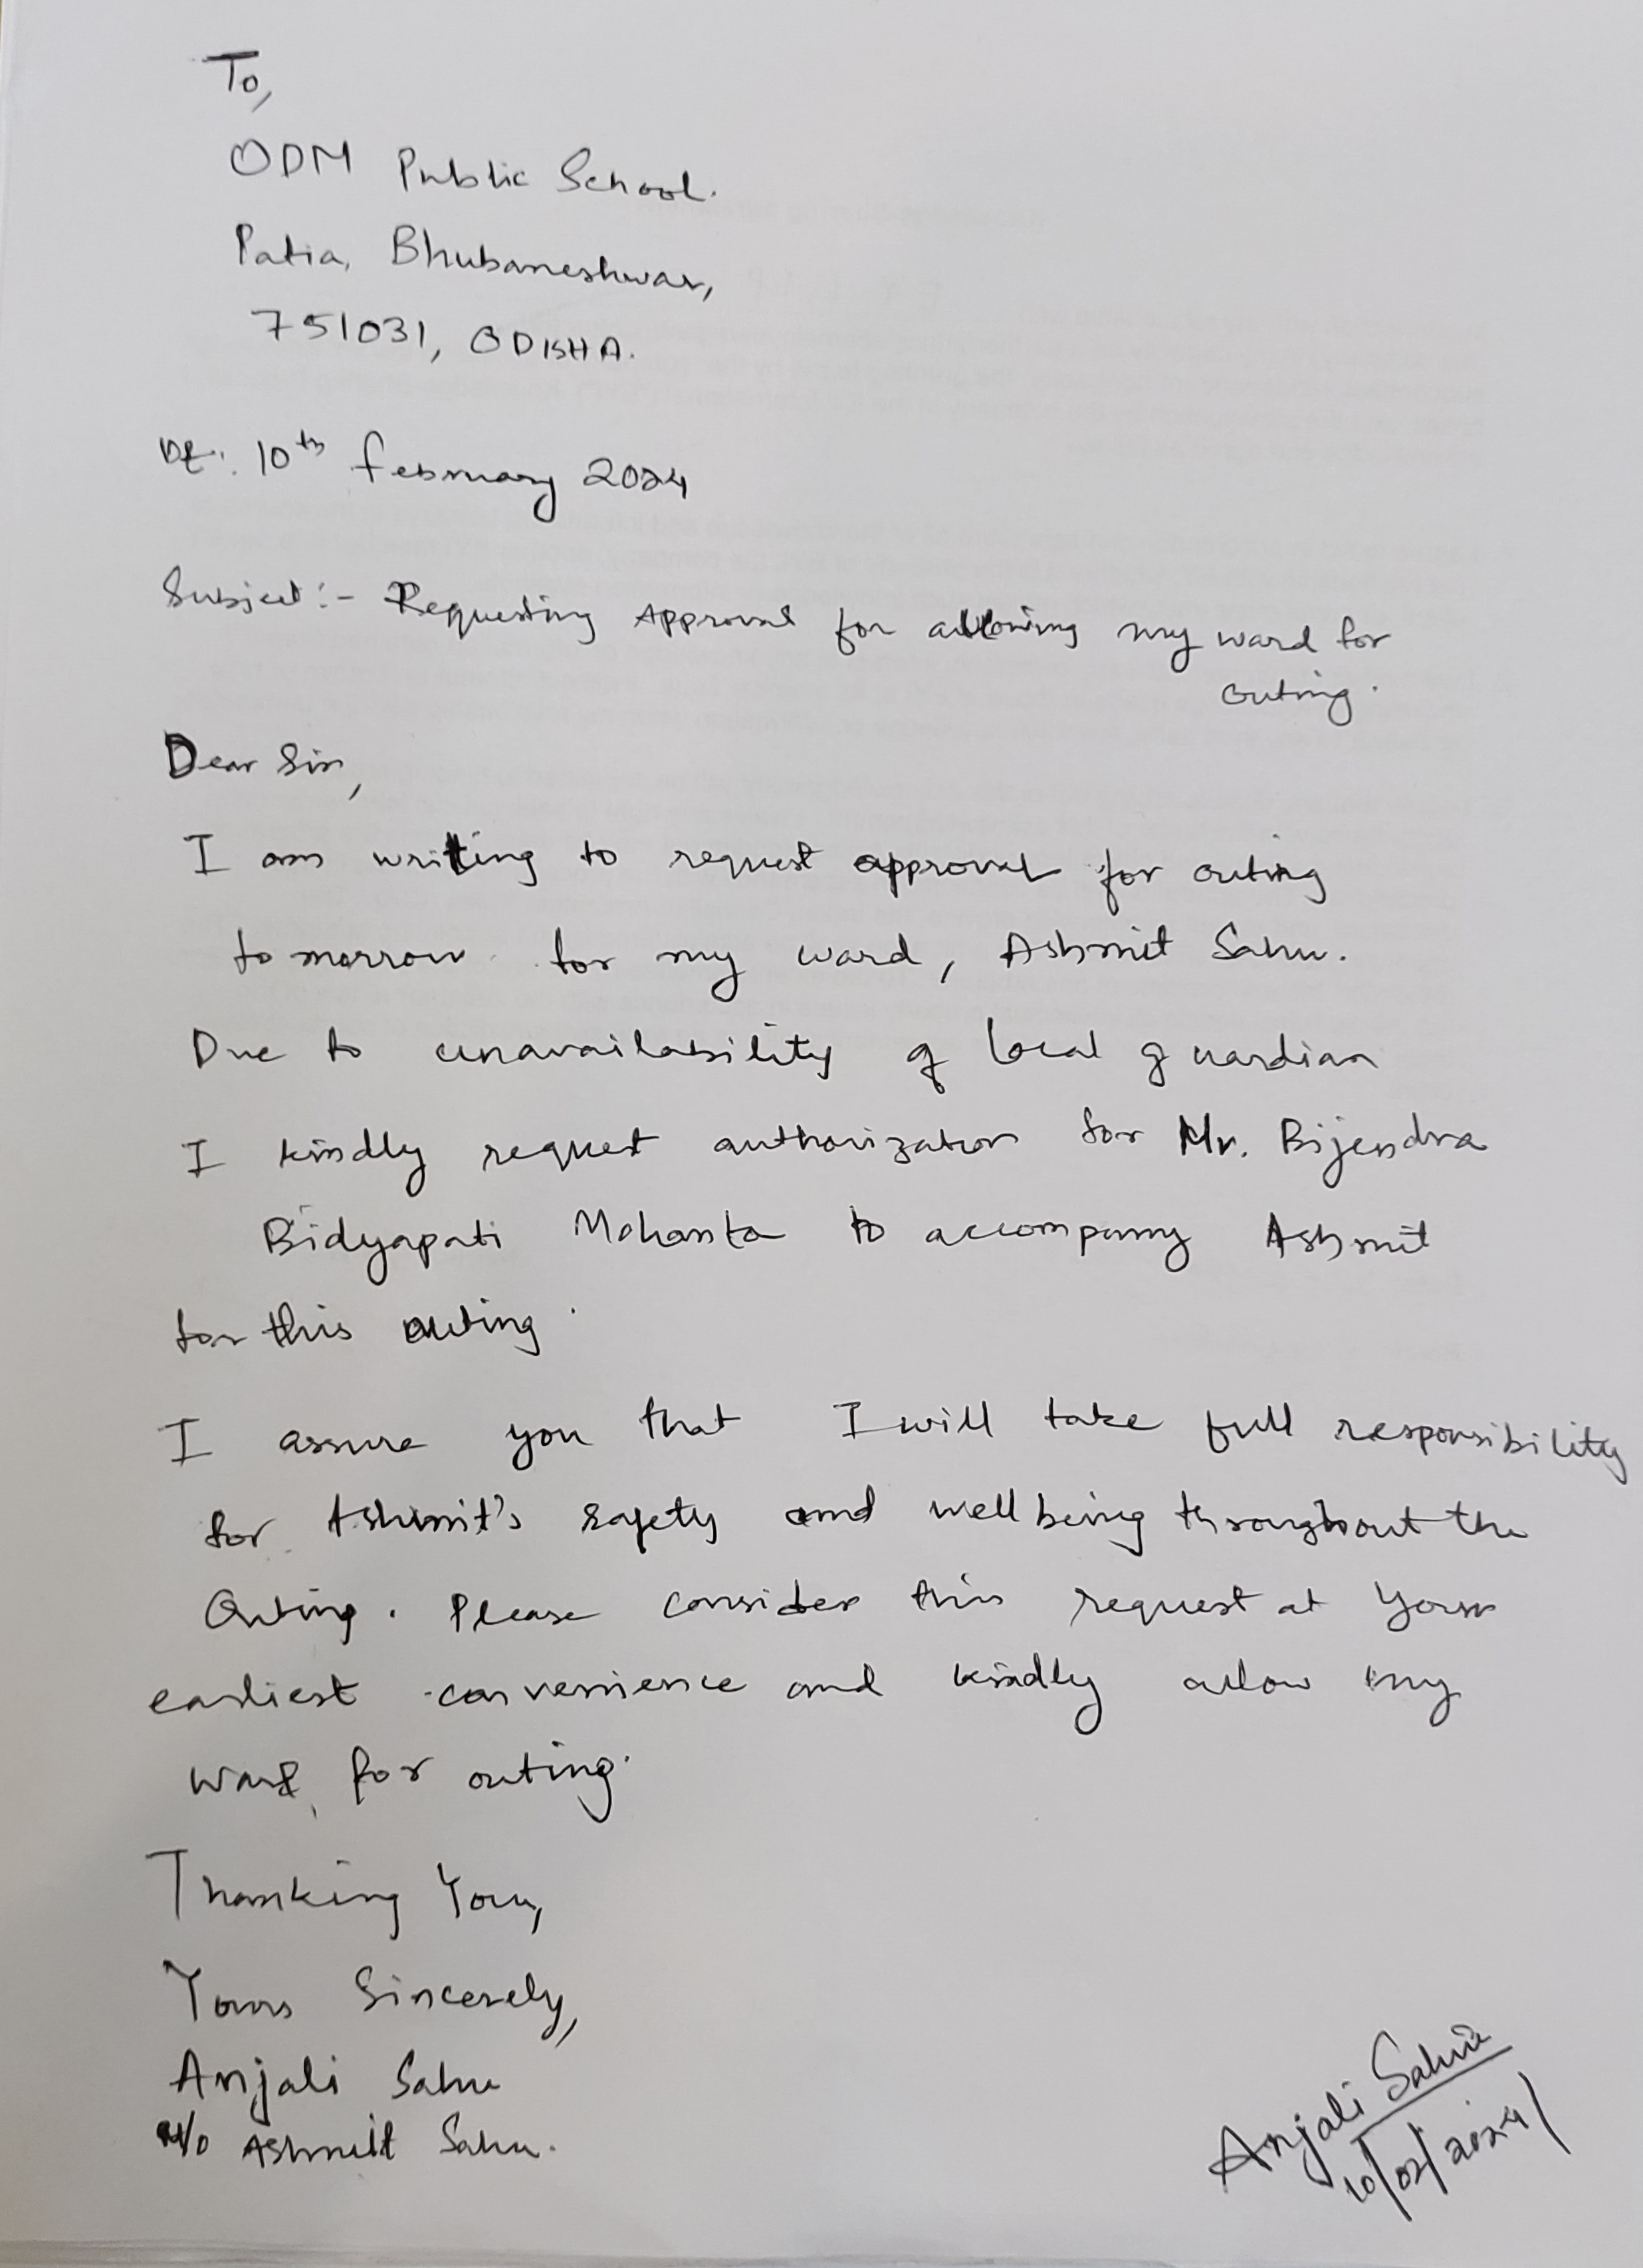 To,
ODM Public School.
Patia, Bhubaneshwar,
751031, ODISHA.
Dt:. 10th February 2024
Subject:- Requesting Approval for allowing my ward for
outing.
Dear Sir,
I am writing to request approval for outing
tomorrow for my ward, Ashmit Sahu.
Due to unavailability of local guardian
I kindly request authorization for Mr. Bijendra
Bidyapati Mohanta to accompany Ashmit
for this outing.
I assure you that I will take full responsibility
for Ashmit's safety and well being throughout the
Outing. Please consider this request at your
earliest convenience and kindly allow my
ward, for outing.
Thanking You,
Yours Sincerely,
Anjali Sahu
M/o Ashmit Sahu.
Anjali Sahu
10/02/2024